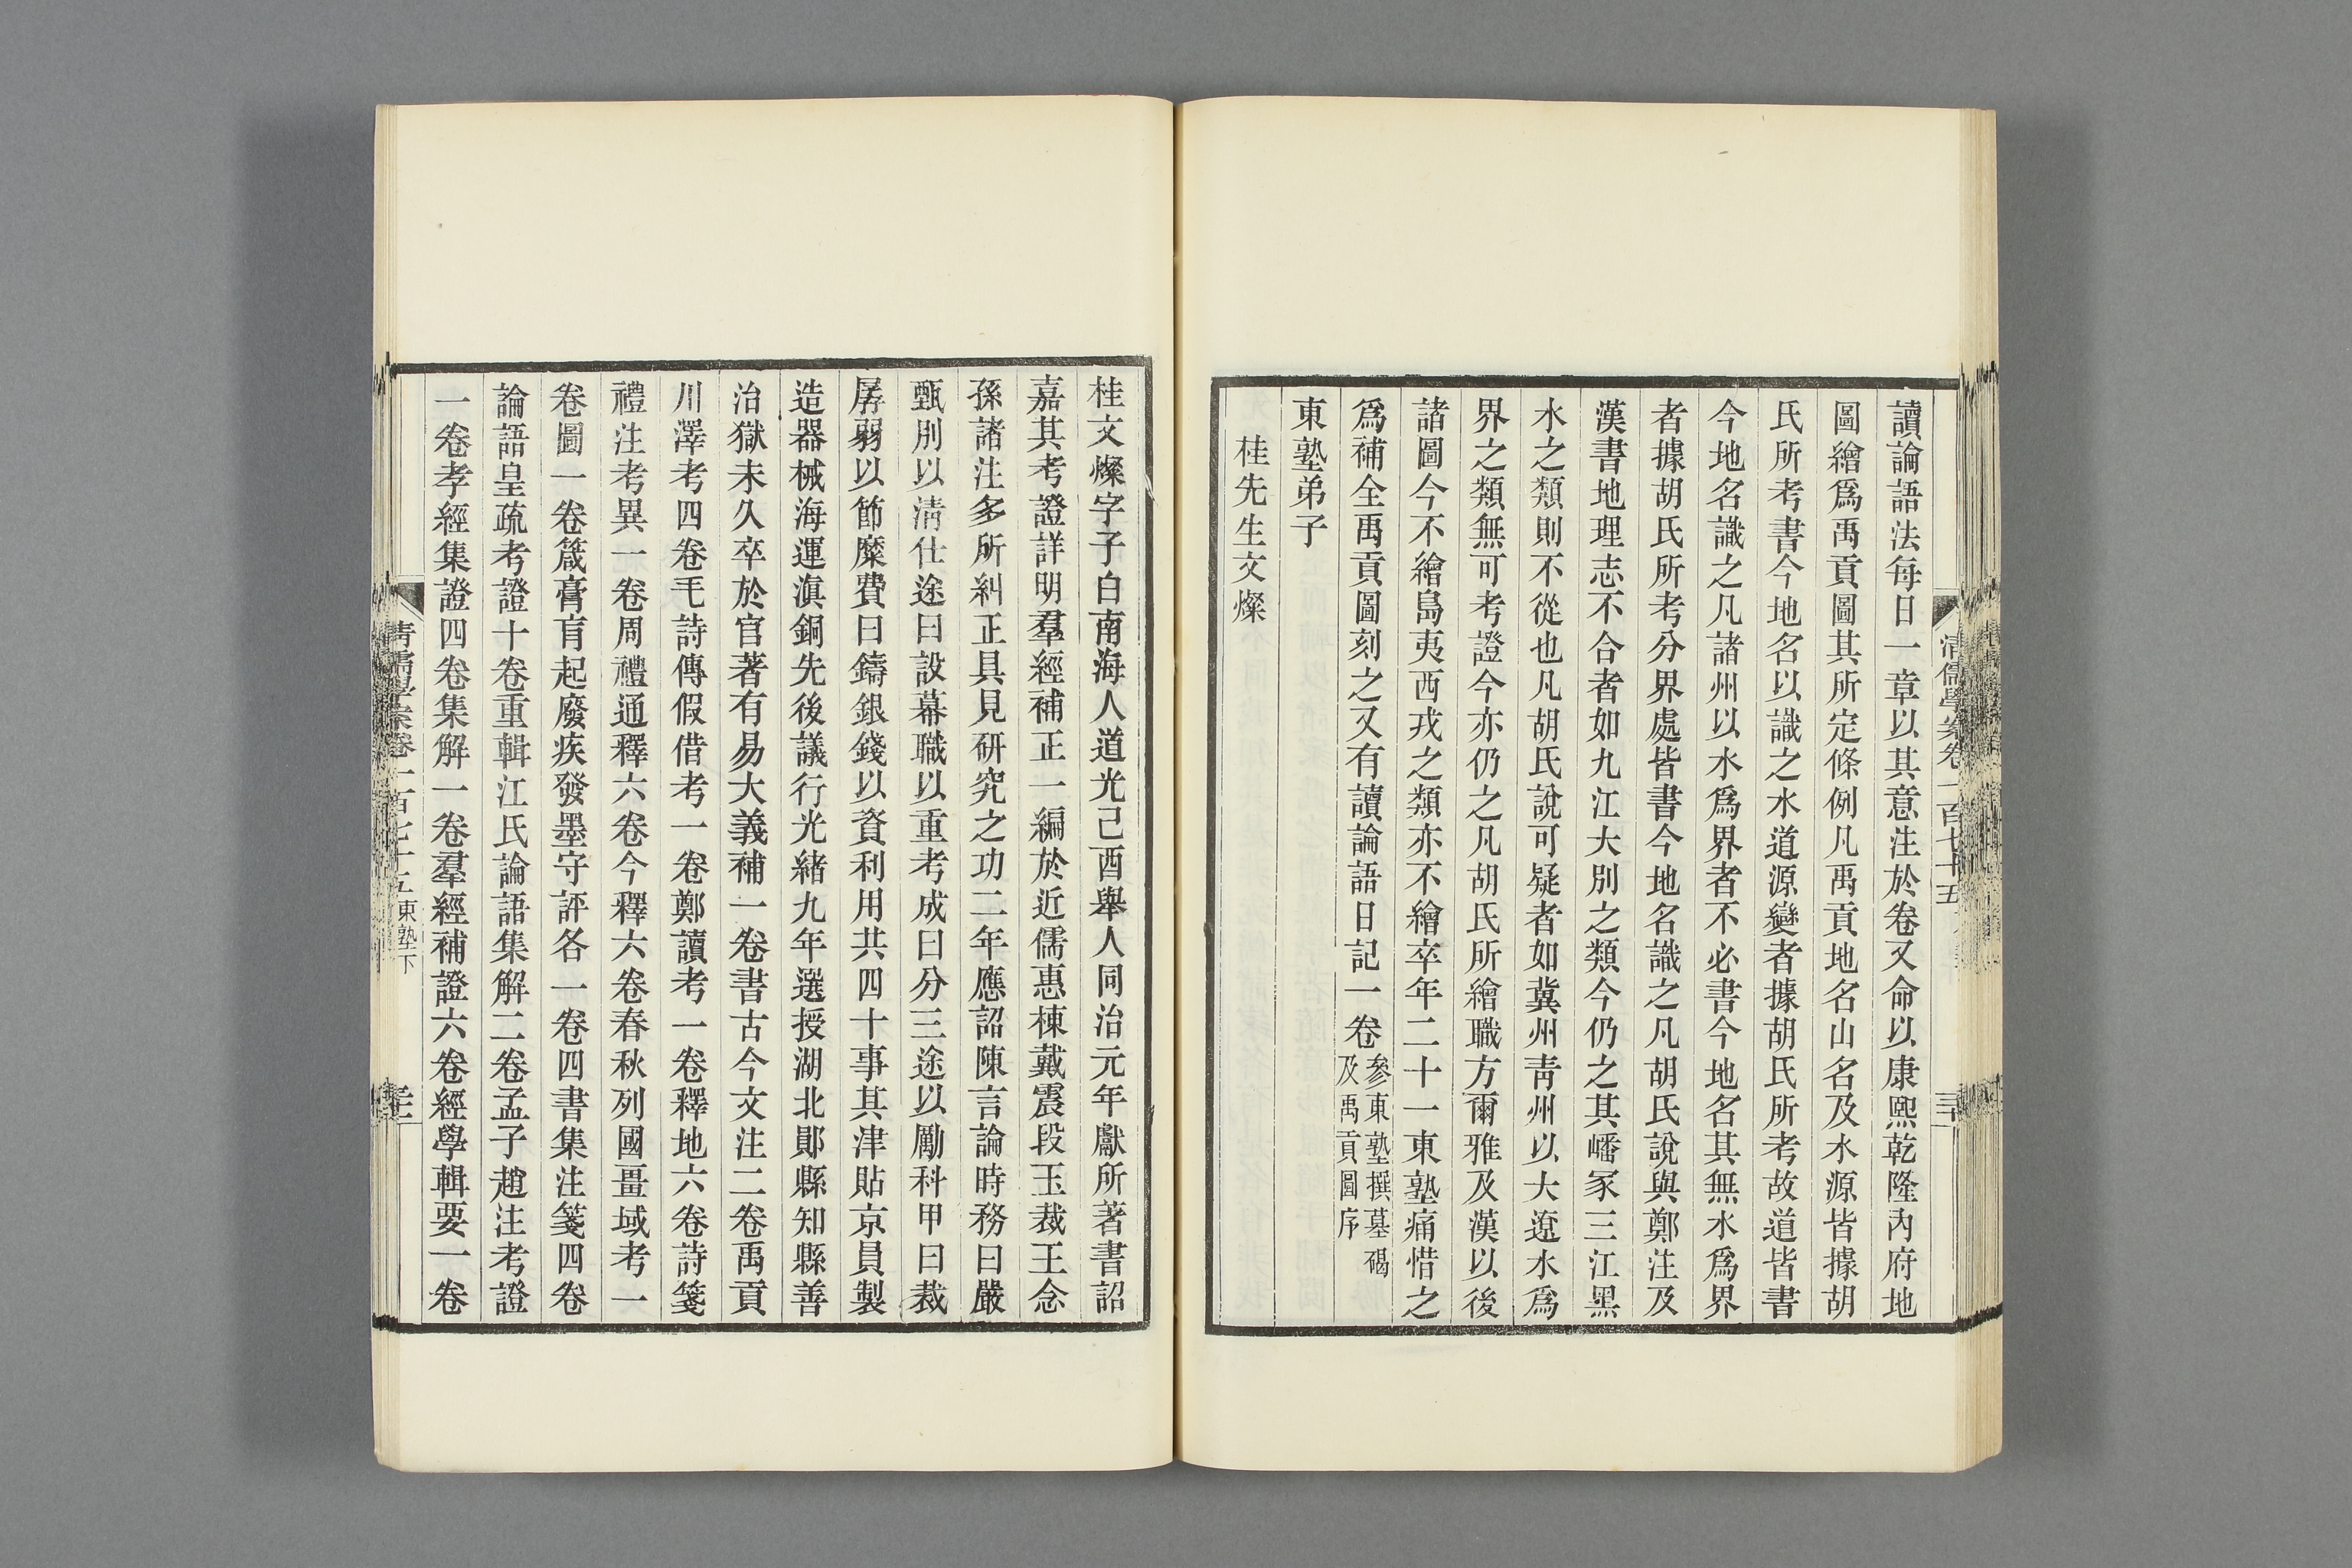 讀論語法每日一章以其意注於卷又命以康熙乾隆內府地
圖繪爲禹貢圖其所定條例凡禹貢地名山名及水源皆據胡
氏所考書今地名以識之水道源變者據胡氏所考故道皆書
今地名識之凡諸州以水爲界者不必書今地名其無水爲界
者據胡氏所考分界處皆書今地名識之凡胡氏說與鄭注及
漢書地理志不合者如九江大別之類今仍之其嶓冢三江黑
水之類則不從也凡胡氏說可疑者如冀州靑州以大遼水爲
界之類無可考證今亦仍之凡胡氏所繪職方爾雅及漢以後
諸圖今不繪島夷西戎之類亦不繪卒年二十一東塾痛惜之
爲補全禹貢圖刻之又有讀論語日記一卷參東塾撰墓碣
及禹貢圖序
東塾弟子
桂先生文燦
桂文燦字子白南海人道光己酉舉人同治元年獻所著書詔
嘉其考證詳明羣經補正一編於近儒惠棟戴震段玉裁王念
孫諸注多所糾正具見研究之功二年應詔陳言論時務曰嚴
甄別以淸仕途曰設幕職以重考成曰分三途以勵科甲曰裁
孱弱以節糜費曰鑄銀錢以資利用共四十事其津貼京員製
造器械海運滇銅先後議行光緒九年選授湖北鄖縣知縣善
治獄未久卒於官著有易大義補一卷書古今文注二卷禹貢
川澤考四卷毛詩傳假借考一卷鄭讀考一卷釋地六卷詩箋
禮注考異一卷周禮通釋六卷今釋六卷春秋列國畺域考一
卷圖一卷箴膏肓起廢疾發墨守評各一卷四書集注箋四卷
論語皇疏考證十卷重輯江氏論語集解二卷孟子趙注考證
一卷孝經集證四卷集解一卷羣經補證六卷經學輯要一卷
淸儒學案卷一百七十五 東塾下